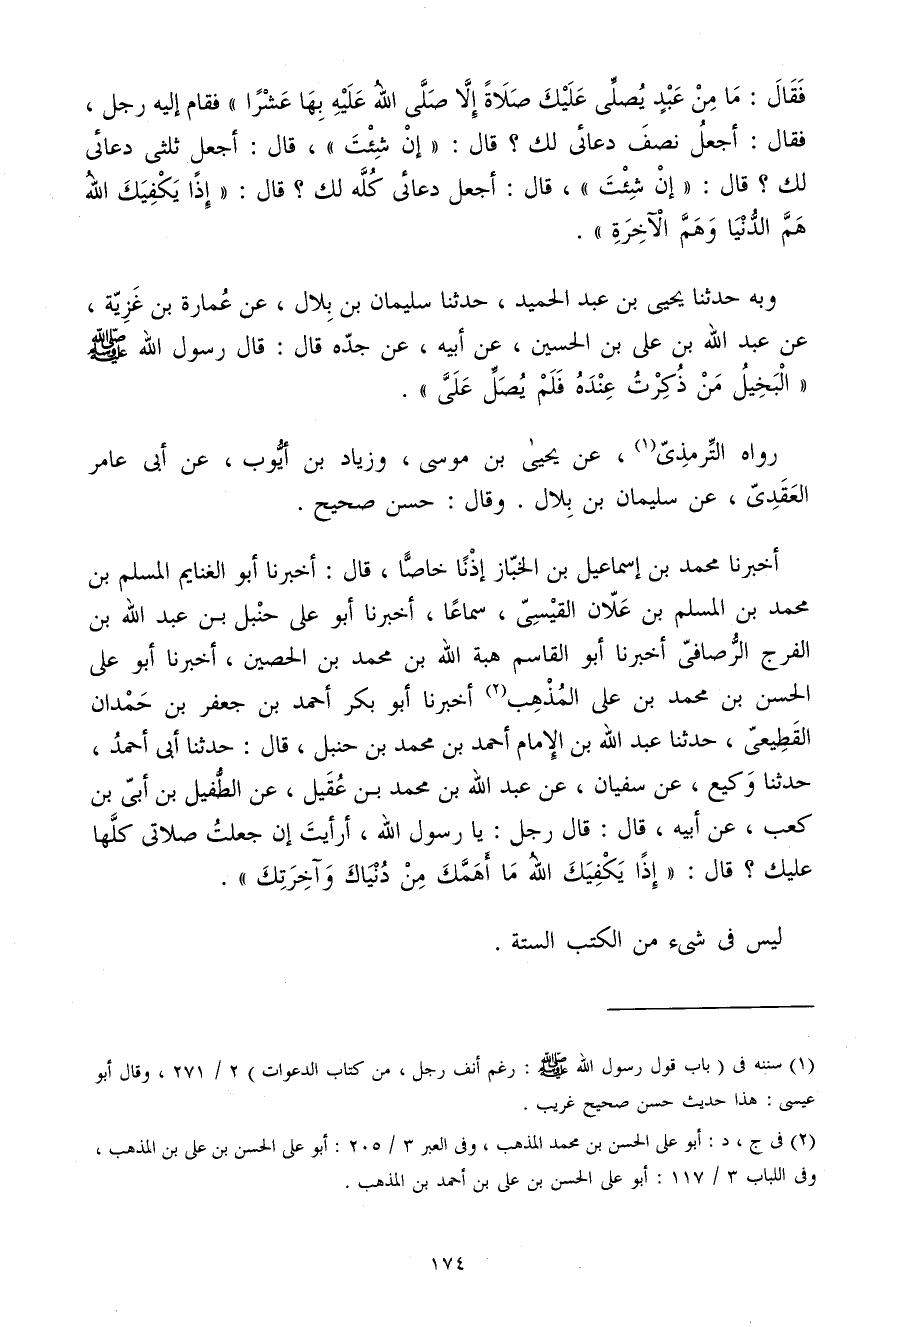 فَقَالَ : مَا مِنْ عَبْدٍ يُصَلِّى عَلَيْكَ صَلَاةً إِلَّا صَلَّى اللهُ عَلَيْهِ بِهَا عَشْرًا » فقام إليه رجل ،
فقال : أجعلُ نصفَ دعائى لك ؟ قال : « إنْ شِئْتَ » ، قال : أجعل ثلثى دعائى
لك ؟ قال : « إنْ شِئْتَ » ، قال : أجعل دعائى كُلَّه لك ؟ قال : « إِذًا يَكْفِيَكَ اللهُ
هَمَّ الدُّنْيَا وَهَمَّ الْآخِرَةِ » .
وبه حدثنا يحيى بن عبد الحميد ، حدثنا سليمان بن بِلال ، عن عُمارة بن غَزِيّة ،
عن عبد الله بن على بن الحسين ، عن أبيه ، عن جدّه قال : قال رسول الله ﷺ
« الْبَخِيلُ مَنْ ذُكِرْتُ عِنْدَهُ فَلَمْ يُصَلِّ عَلَىَّ » .
رواه التِّرمذِىّ(١) ، عن يحيىٰ بن موسى ، وزياد بن أيُّوب ، عن أبى عامر
العَقَدِىّ ، عن سليمان بن بِلال . وقال : حسن صحيح .
أخبرنا محمد بن إسماعيل بن الخبّاز إذْنًا خاصًّا ، قال : أخبرنا أبو الغنايم المسلم بن
محمد بن المسلم بن عَلّان القيْسِىّ ، سماعًا ، أخبرنا أبو على حنْبل بن عبد الله بن
الفرج الرُّصافىّ أخبرنا أبو القاسم هبة الله بن محمد بن الحصين ، أخبرنا أبو على
الحسن بن محمد بن على المُذْهِب(٢) أخبرنا أبو بكر أحمد بن جعفر بن حَمْدان
القَطِيعىّ ، حدثنا عبد الله بن الإمام أحمد بن محمد بن حنبل ، قال : حدثنا أبى أحمدُ ،
حدثنا وَكيع ، عن سفيان ، عن عبد الله بن محمد بن عُقَيل ، عن الطُّفيل بن أبىّ بن
كعب ، عن أبيه ، قال : قال رجل : يا رسول الله ، أرأيتَ إن جعلتُ صلاتى كلَّها
عليك ؟ قال : « إِذًا يَكْفِيَكَ اللهُ مَا أَهَمَّكَ مِنْ دُنْيَاكَ وَآخِرَتِكَ » .
ليس فى شىء من الكتب الستة .
(١) سننه فى ( باب قول رسول الله ﷺ : رغم أنف رجل ، من كتاب الدعوات ) ٢ / ٢٧١ ، وقال أبو
عيسى : هذا حديث حسن صحيح غريب .
(٢) فى ج ، د : أبو على الحسن بن محمد المذهب ، وفى العبر ٣ / ٢٠٥ : أبو على الحسن بن على بن المذهب ،
وفى اللباب ٣ / ١١٧ : أبو على الحسن بن على بن أحمد بن المذهب .
١٧٤